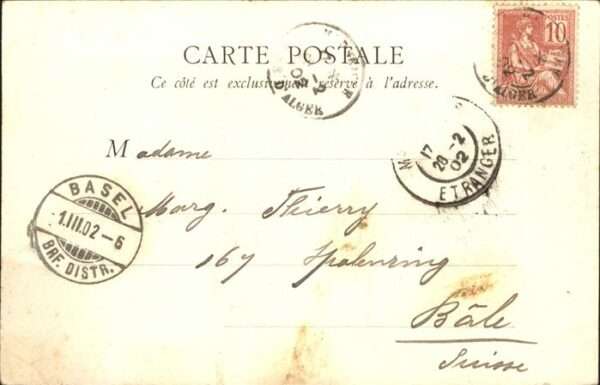 CARTE POSTALE
Ce côté est exclusivement réservé à l'adresse.
POSTES
10
D'ALGER
D'ALGER
17
28-2
02
ETRANGER
Madame
Marg. Thierry
167 Spalenring
Bâle
Suisse
BASEL
1.III.02-6
BRF. DISTR.